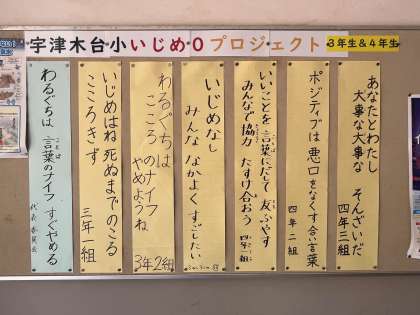 宇津木台小いじめ0プロジェクト
3年生&4年生
あなたとわたし
大事な大事な そんざいだ
四年三組
ポジティブは 悪口をなくす合い言葉
四年二組
いいことを 言葉にだして 友ふやす
みんなで協力 たすけ合おう
四年一組
いじめなし
みんな なかよく すごしたい
わるぐちは
こころのナイフ
やめようね
3年2組
いじめはね 死ぬまでのこる
こころきず
三年一組
わるぐちは 言葉のナイフ すぐやめる
ことば
代表委員会